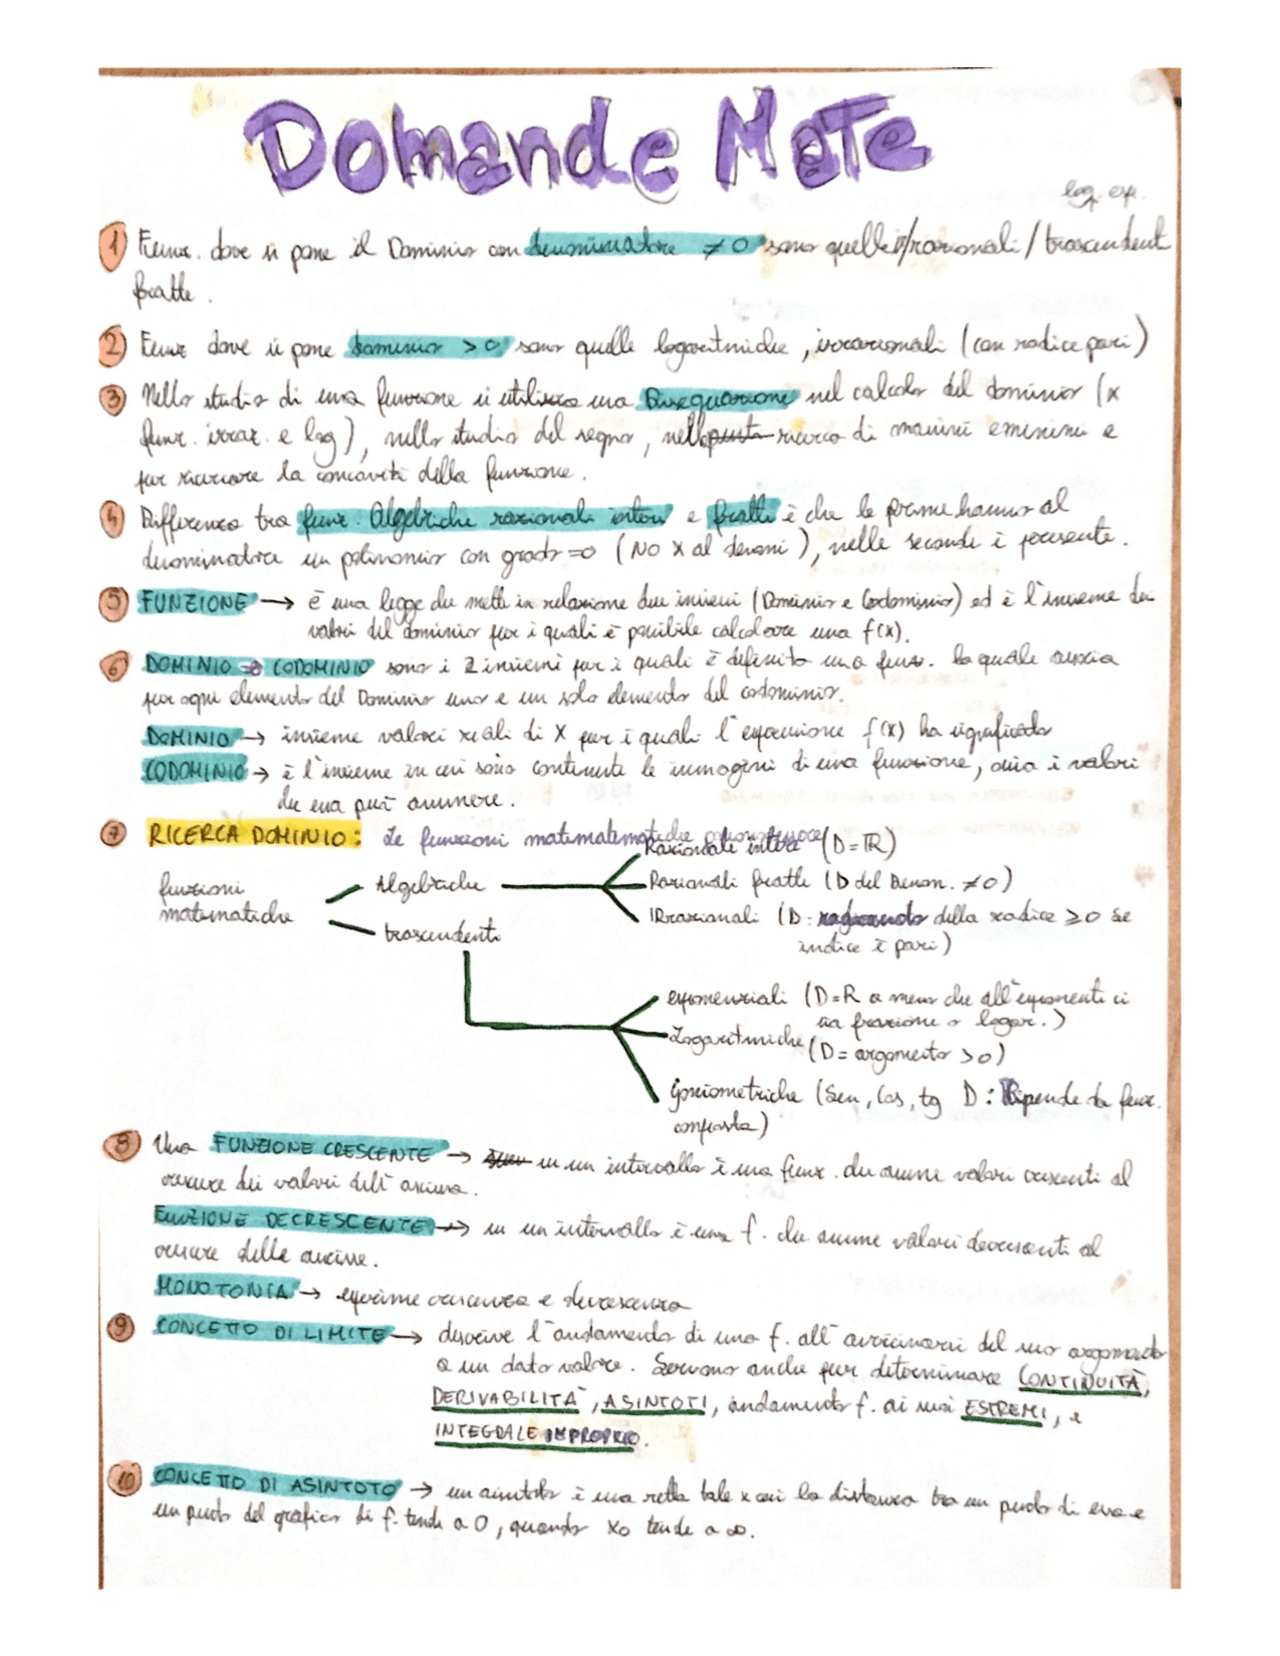 Domande Mate
log, exp.
1) Funz. dove si pone il Dominio con denominatore ≠0 sono quelle i/razionali/trascendent
fratte.
2) Funz dove si pone dominio >0 sono quelle logaritmiche, irrazionali (con radice pari)
3 Nello studio di una funzione si utilizza una Disequazione nel calcolo del dominio (x
funz. irraz. e log), nello studio del segno, nella ricerca di massimi e minimi e
per ricercare la concavità della funzione.
4 Differenza tra funz. Algebriche razionali intere e fratte è che le prime hanno al
denominatore un polinomio con grado =0 (No X al denomi), nelle seconde è presente.
5 FUNZIONE → è una legge che mette in relazione due insiemi (Dominio e Codominio) ed è l'insieme dei
valori del dominio per i quali è possibile calcolare una f(x).
6 DOMINIO e CODOMINIO sono i 2 insiemi per i quali è definita una funz. la quale associa
per ogni elemento del Dominio uno e un solo elemento del codominio.
DOMINIO → insieme valori reali di X per i quali l'espressione f(x) ha significato
CODOMINIO → è l'insieme in cui sono contenute le immagini di una funzione, ossia i valori
che essa può assumere.
7 RICERCA DOMINIO: Le funzioni matematematiche
Razionale intera (D=ℝ)
funzioni
matematiche
Algebriche
Razionali fratte (D del Denom. ≠0)
trascendenti
IRrazionali (D: radicando della radice ≥0 se
indice è pari)
esponenziali (D=R a meno che all'esponente ci
sia frazione o logar.)
Logaritmiche (D= argomento >0)
Goniometriche (Sen, Cos, tg D: Dipende da funz.
composta)
8 Una FUNZIONE CRESCENTE → in un intervallo è una funz. che assume valori crescenti al
crescere dei valori dell'ascissa.
FUNZIONE DECRESCENTE → in un intervallo è una f. che assume valori decrescenti al
crescere delle ascisse.
MONOTONIA → esprime crescenza e decrescenza
9 CONCETTO DI LIMITE → descrive l'andamento di una f. all'avvicinarsi del suo argomento
a un dato valore. Servono anche per determinare CONTINUITÀ,
DERIVABILITÀ, ASINTOTI, andamento f. ai suoi ESTREMI, e
INTEGRALE IMPROPRIO.
10 CONCETTO DI ASINTOTO → un asintoto è una retta tale x cui la distanza tra un punto di essa e
un punto del grafico di f. tende a 0, quando x0 tende a ∞.